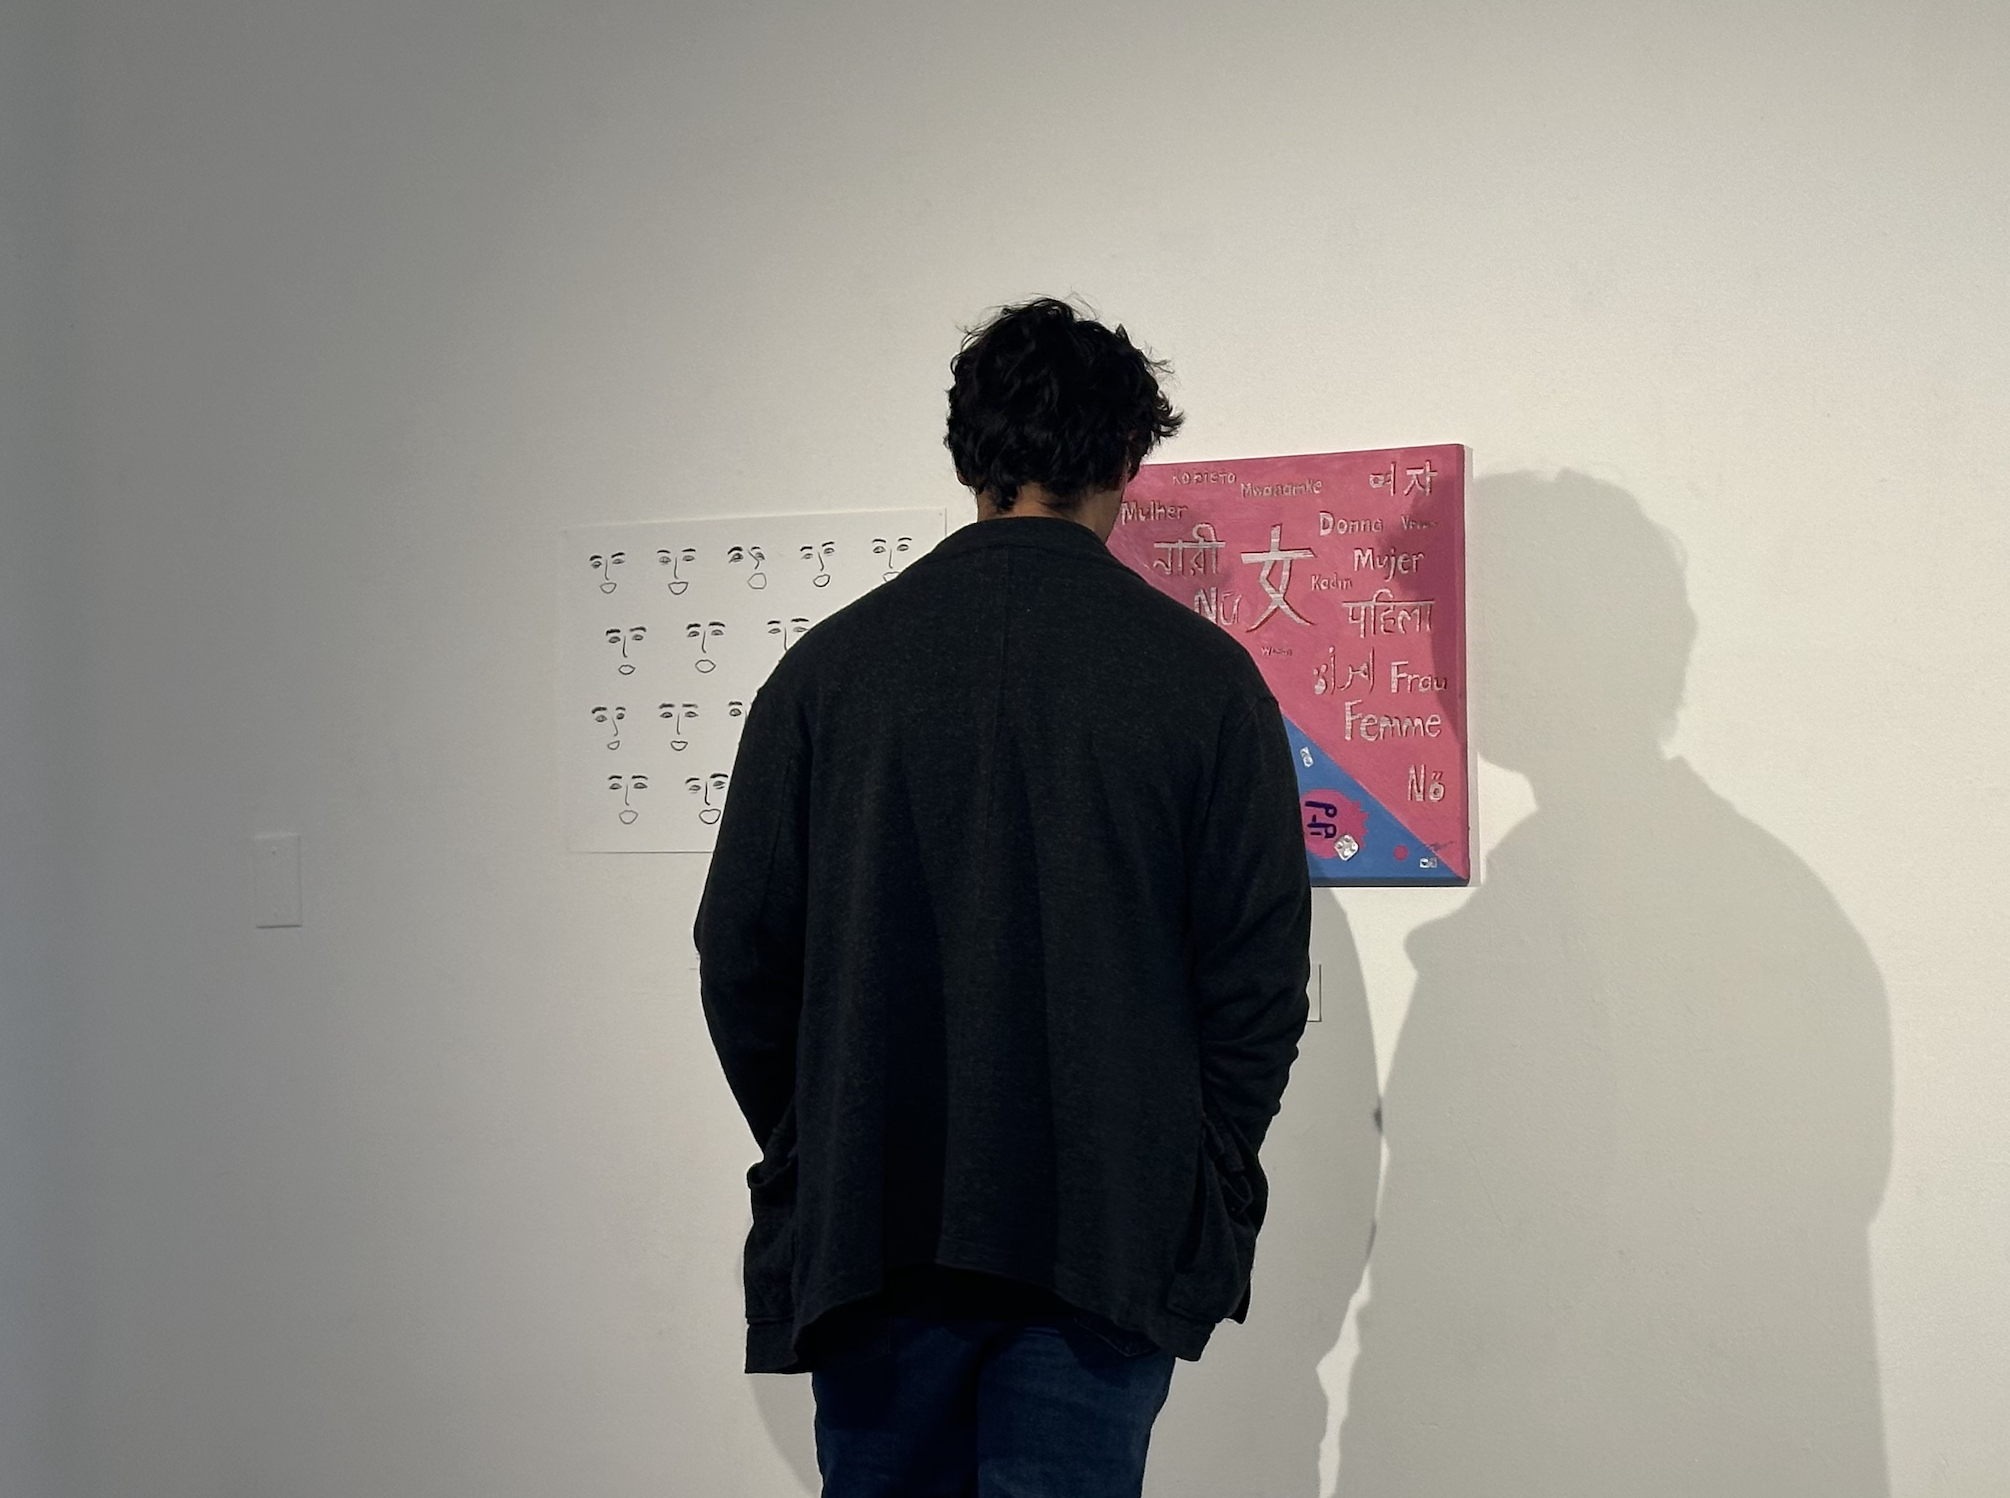 Kobieta
Mwanamke
여자
Mulher
Donna
নারী
女
Mujer
Kadın
Nữ
महिला
امرأة
Frau
Femme
Nő